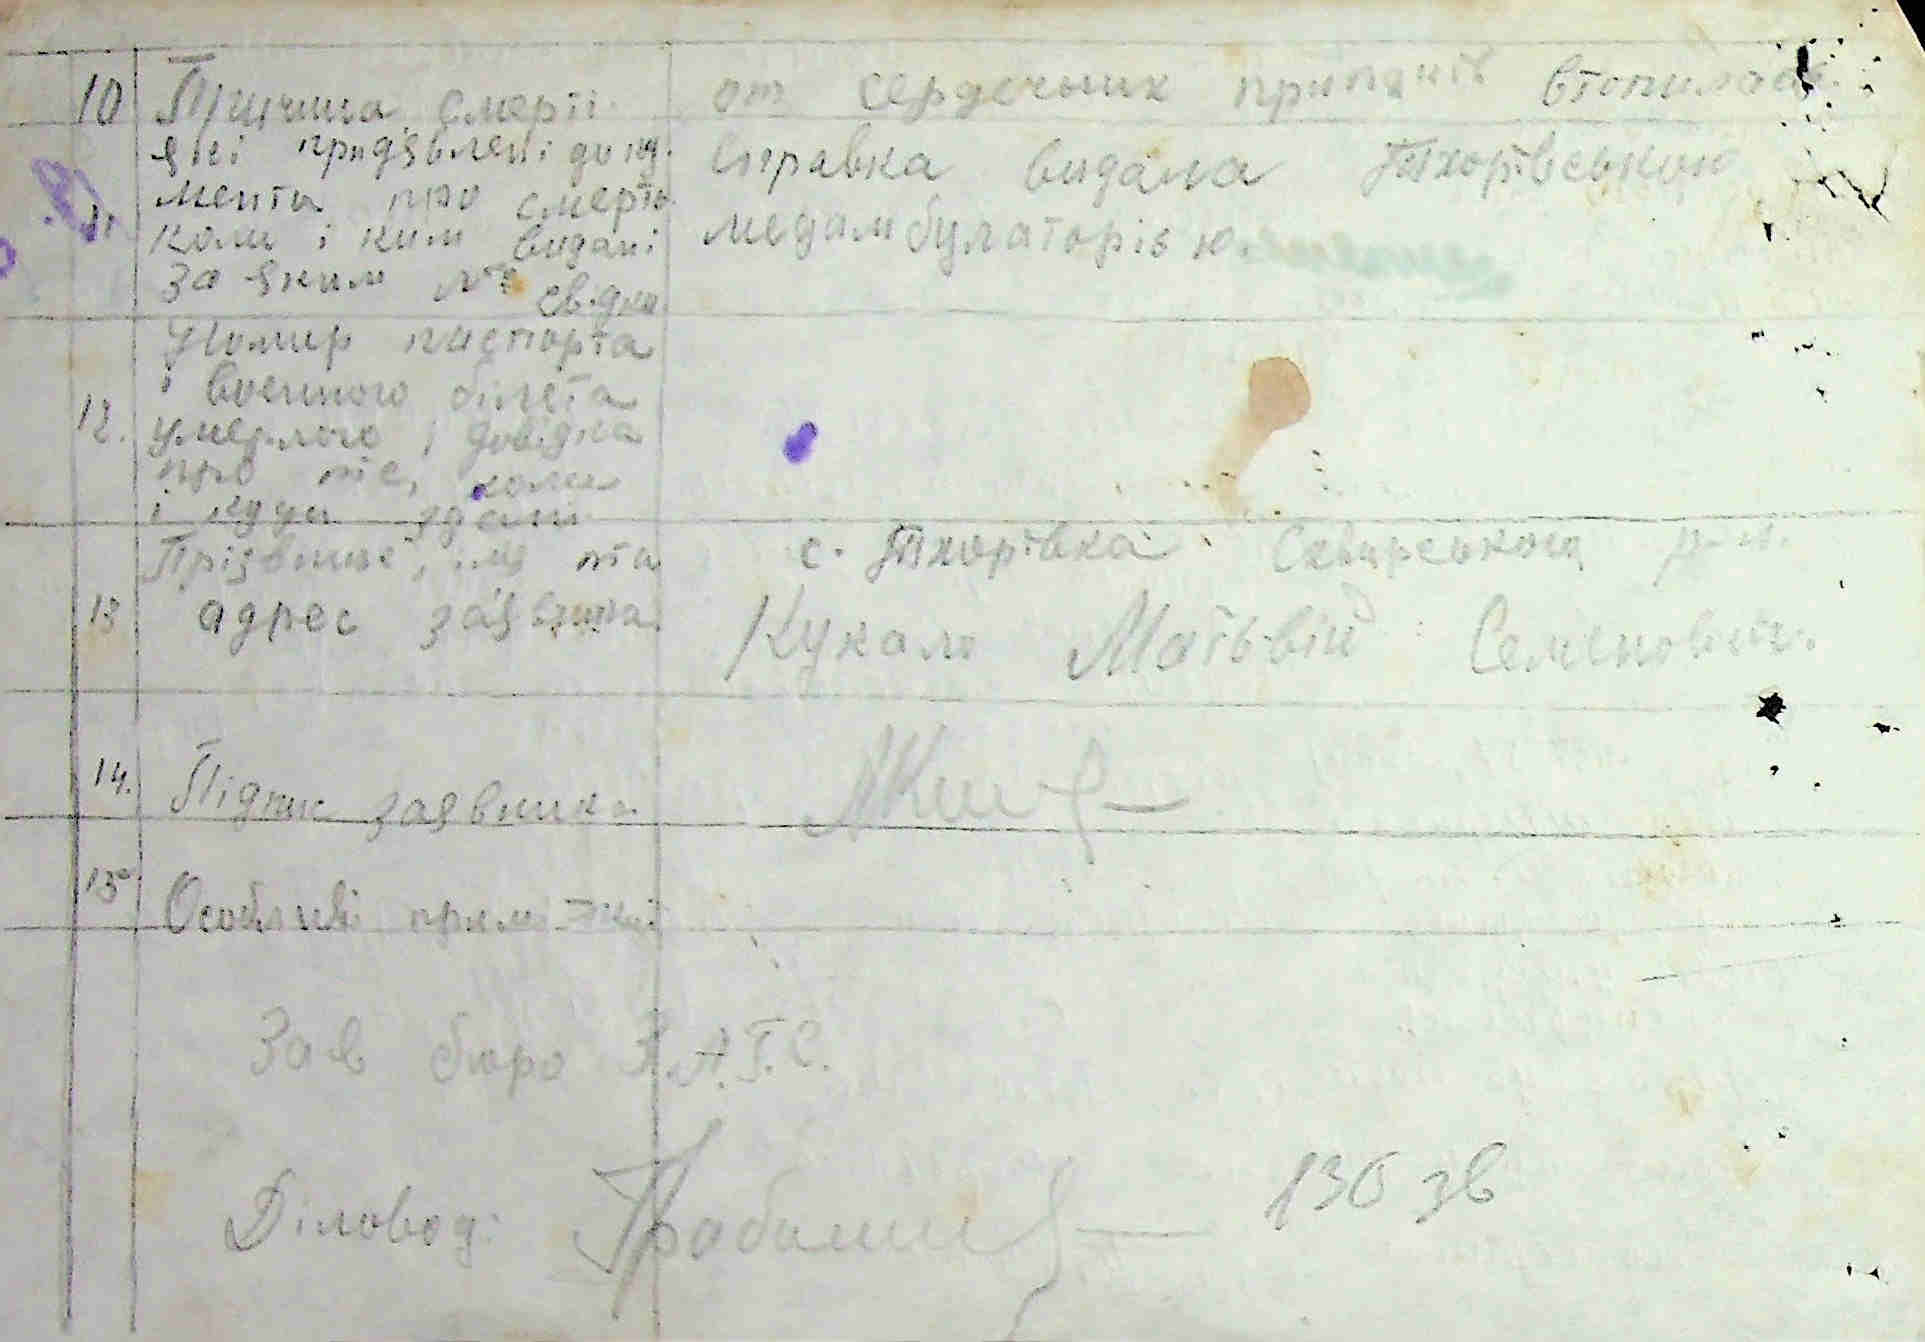 10 Причина смерті от сердечних припадків втопилась.
які придявлені доку-
менти про смерть справка видана Тхорівською
11. коли і ким видані медамбулаторією.
за яким № свідка
Номир паспорта
і военного білета
12. умерлого і довідка
про те, коли
і куди здані
Прізвище, імя та с. Тхорівка Сквирського р-н.
13 адрес заявника Кукало Матьвій Семенович.
14. Підпис заявника
15 Особливі примітки:
Зав бюро З.А.Г.С.
Діловод: 136 зв